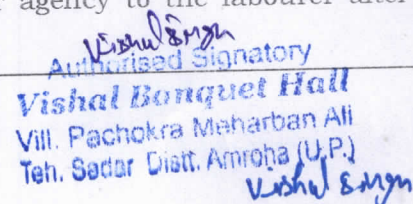 agency to the labourer after
Vishal Singh
Authorised Signatory
Vishal Banquet Hall
Vill. Pachokra Meharban Ali
Teh. Sadar Distt. Amroha (U.P.)
Vishal Singh